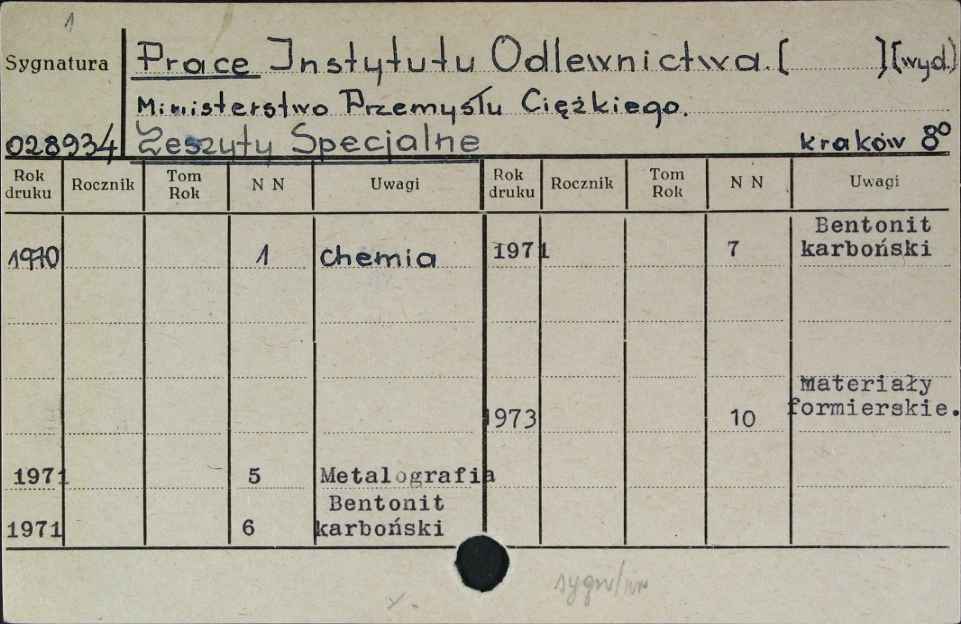 1
Sygnatura
Prace Instytutu Odlewnictwa. [ ] [wyd.]
Ministerstwo Przemysłu Ciężkiego.
028934 Zeszyty Specjalne Kraków 8º
Rok druku Rocznik Tom Rok N N Uwagi Rok druku Rocznik Tom Rok N N Uwagi
1970 1 Chemia 1971 7 Bentonit karboński
1973 10 Materiały formierskie.
1971 5 Metalografia
1971 6 Bentonit karboński